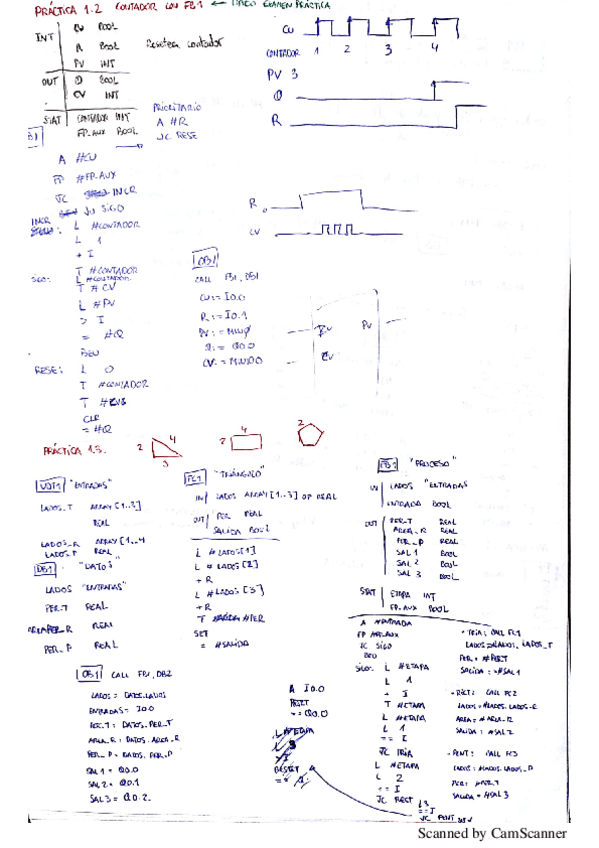 PRÁCTICA 1.2 CONTADOR CON FB1 ← EXAMEN PRÁCTICA
INT
CU BOOL
R BOOL Resetea contador
PV INT
OUT
Q BOOL
CV INT
STAT
CONTADOR INT
FP_AUX BOOL
PRIORITARIO
A #R
JC RESE
CU
CONTADOR 1 2 3 4
PV 3
Q
R
A #CU
FP #FP_AUX
JC INCR
JU SIGO
INCR: L #CONTADOR
L 1
+ I
T #CONTADOR
SIGO: L #CONTADOR
T #CV
L #PV
> I
= #Q
BEU
RESE: L 0
T #CONTADOR
T #
CLR
= #Q
R
CV
OB1
CALL FB1, DB1
CU:= I0.0
R:= I0.1
PV:= MW0
Q:= Q0.0
CV:=
PV
CV
PRÁCTICA 1.3.
2 4 3
4 2
2
UDT1 "ENTRADAS"
LADOS_T ARRAY [1..3]
REAL
LADOS_R ARRAY [1..4
LADOS_P REAL
DB1 "DATOS"
LADOS "ENTRADAS"
PER_T REAL
AREA_R REAL
PER_P REAL
FC1 "TRIÁNGULO"
IN LADOS ARRAY [1..3] OF REAL
OUT PER REAL
SALIDA BOOL
L #LADOS[1]
L #LADOS[2]
+R
L #LADOS[3]
+R
T #PER
SET
= #SALIDA
FB1 "PROCESO"
IN LADOS "ENTRADAS"
ENTRADA BOOL
OUT PER_T REAL
AREA_R REAL
PER_P REAL
SAL 1 BOOL
SAL 2 BOOL
SAL 3 BOOL
STAT ETAPA INT
FP_AUX BOOL
A #ENTRADA
FP #FP_AUX
JC SIGO
BEU
SIGO: L #ETAPA
L 1
+ I
T #ETAPA
L #ETAPA
L 1
== I
JC TRIA
L #ETAPA
L 2
== I
JC RECT
L 3
== I
JC PENT
TRIA: CALL FC1
LADOS:=#LADOS.LADOS_T
PER:= #PER_T
SALIDA:= #SAL1
RECT: CALL FC2
LADOS:=#LADOS.LADOS_R
AREA:= #AREA_R
SALIDA:= #SAL2
PENT: CALL FC3
LADOS:=#LADOS.LADOS_P
PER:=
SALIDA:= #SAL3
OB1 CALL FB1, DB2
LADOS = DATOS.LADOS
ENTRADAS = I0.0
PER_T: DATOS.PER_T
AREA_R: DATOS.AREA_R
PER_P = DATOS.PER_P
SAL1 = Q0.0
SAL2 = Q0.1
SAL3 = Q0.2.
A I0.0
== Q0.0
L #ETAPA
Scanned by CamScanner